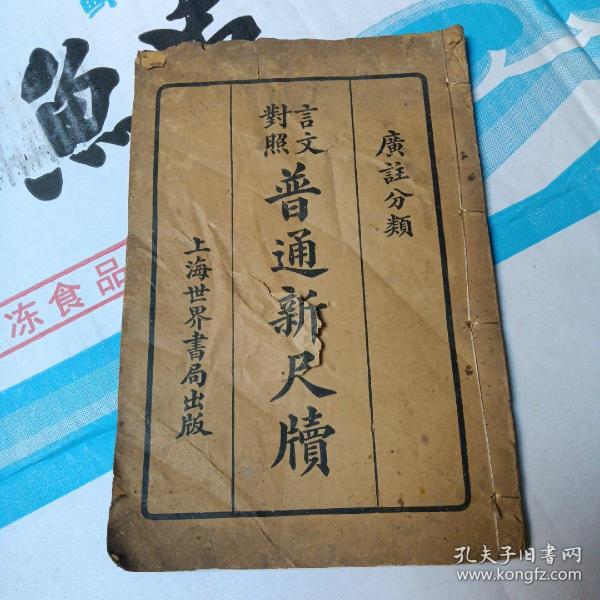 廣註分類
言文
對照
普通新尺牘
上海世界書局出版
冻食品
孔夫子旧书网
www.kongfz.com